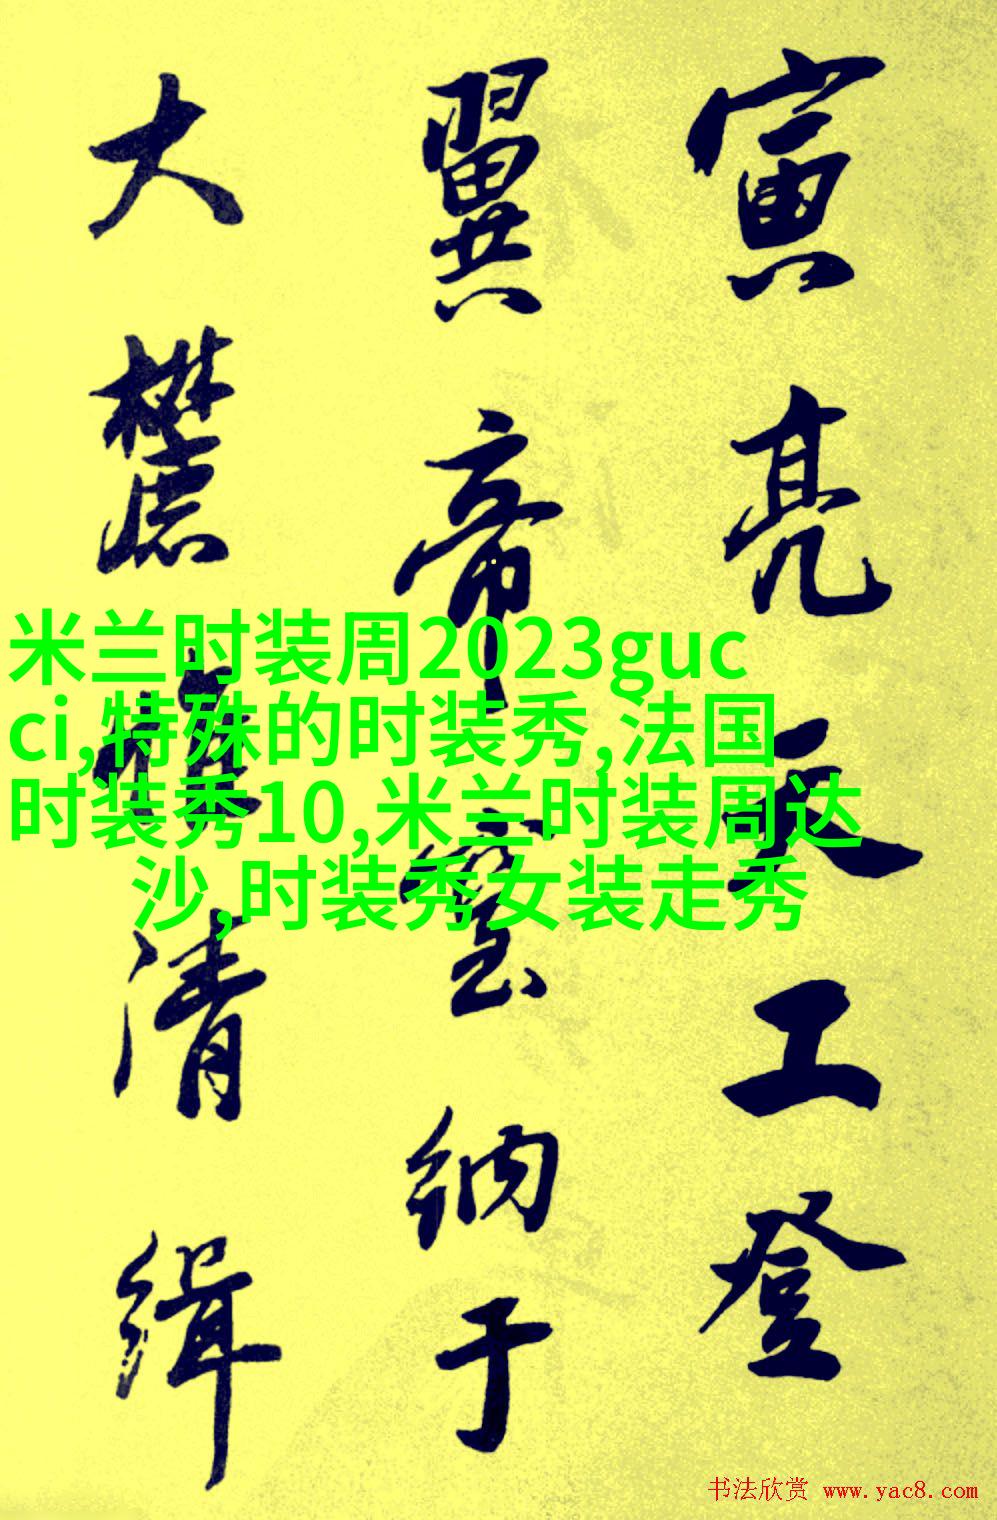 寅亮天工登
翼帝室纳于
大麓惟清缉
米兰时装周2023guc
ci,特殊的时装秀,法国
时装秀10,米兰时装周达
沙,时装秀女装走秀
书法欣赏 www.yac8.com